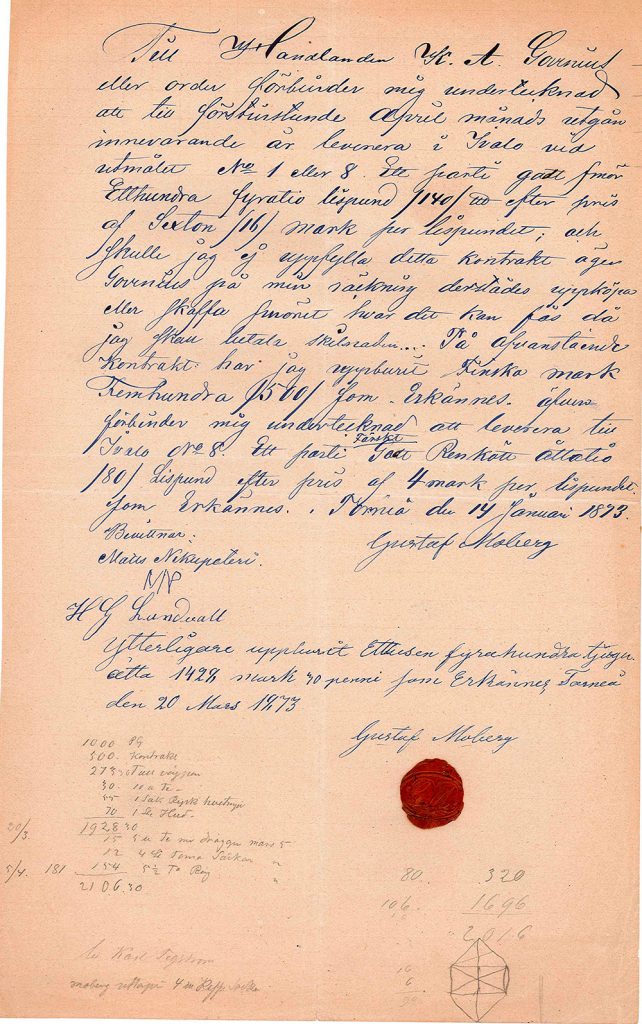 Till Handlanden K. A. Govenius
eller order förbinder mig undertecknad
att till förstkstunde April månads utgån
innevarande år leverera i Ivalo vid
utmålet No 1 eller 8. Ett parti godt smör
Etthundra fyratio lispund /140/ efter pris
af Sexton /16/ mark per lispundet; och
skulle jag ej uppfylla detta kontrakt äger
Govenius på min räckning derstädes uppköpa
eller skaffa smöret hvar det kan fås då
jag skall betala skilnaden.... På ofvanstående
Kontrakt har jag uppburit Finska mark
Femhundra /500/ som Erkännes. äfven
förbinder mig undertecknad att leverera till
Färskt
Ivalo No 8. Ett parti Godt Renkött åttatio
/80/ Lispund efter pris af 4 mark per lispundet.
som Erkännes. Torneå du 14 Januari 1873.
Bevittnar: Gustaf Moberg
Matts Nikupeteri.
H G Lundvall
Ytterligare uppburit Ettusen fyrahundra tjugu-
åtta 1428 mark 30 penni som Erkännes Torneå
den 20 Mars 1873
Gustaf Moberg
1000
500. Kontrakt
273
30.
55 1 Säck
70
30/3. 1928 30
15
12
5/4. 181 154
2106.30
80. 320
106 1696
2016
16
6